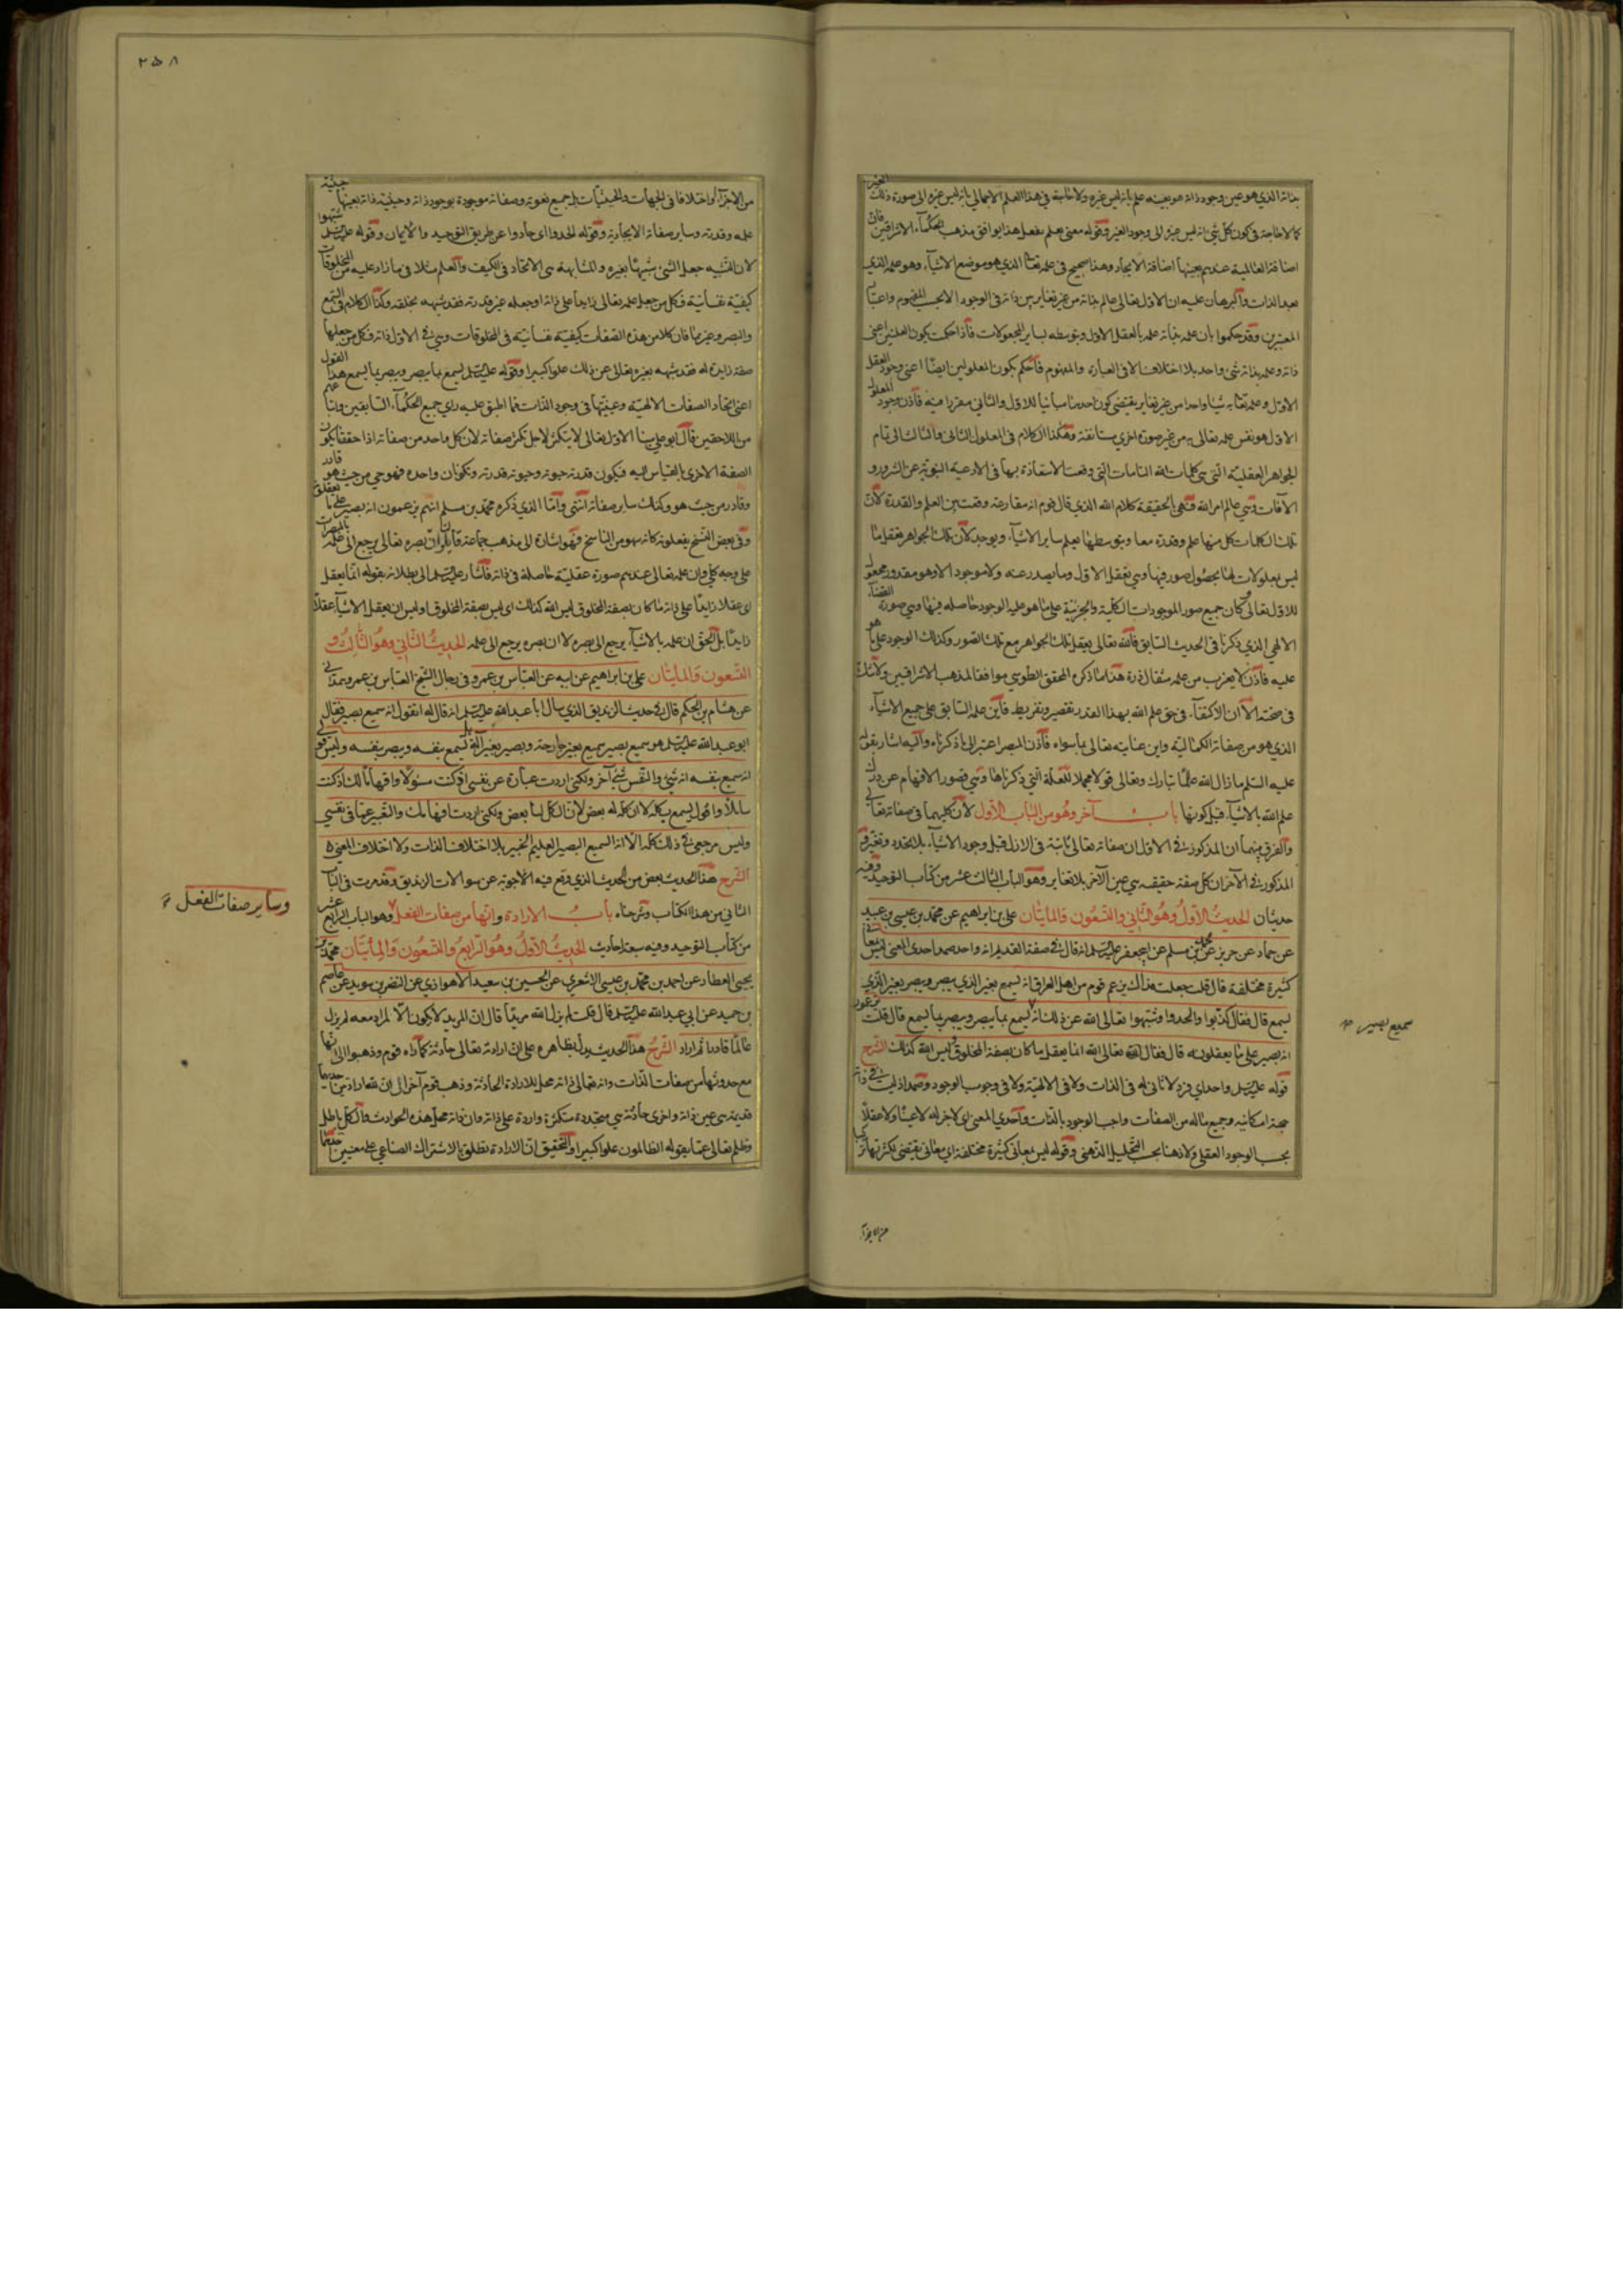 بذاته الذي هو عين وجود ذاته هو بعينه علم بانه ليس غيره ولا حاجة في هذا العلم الاجمالي بانه ليس غيره الى صورة ذلك الغير
كما لا حاجة في كون كل شي انه ليس غيره الى وجود الغير وقوله معنى يعلم يفعل هذا يوافق مذهب الحكماء الاشراقين فان
اضافة العالمية عندهم بعينها اضافة الايجاد وهذا صحيح في علمه تعالى الذي هو موضع الاشياء وهو علمه الذي
بعد الذات والبرهان عليه ان الاول تعالى عالم بذاته من غير تغاير بين ذاته في الوجود الا بحسب المفهوم واعتبار
المعتبرين وقد حكموا بان علمه بذاته علة بالعقل الاول وبتوسطه لساير المجعولات فاذا حكمت بكون العلتين اعني
ذاته وعلمه بذاته شي واحد بلا اختلاف الا في العبارة والمفهوم فاحكم بكون المعلولين ايضا اعني وجود العقل
الاول وعلمه تعالى به شيئا واحدا من غير تغاير يقتضي كون احدهما مباينا للاول والثاني مقررا فيه فاذن وجود المعلول
الاول هو نفس علمه تعالى به من غير صورة اخرى مستانفة وهكذا الكلام في المعلول الثاني والثالث الى تمام
الجواهر العقلية التي هي كلمات الله التامات التي وقعت الاستعاذة بها في الادعية النبوية عن الشرور و
الآفات وهي عالم امر الله فهي بالحقيقة كلام الله الذي قال قوم انه مقارعة وقعت بين العلم والقدرة لان
تلك الكلمات كل منها علم وقدرة معا وبتوسطها يعلم ساير الاشياء ويوجد لان تلك الجواهر تعقل ما
ليس بمعلولات لها بحصول صور فيها وهي تعقل الاول وما يصدر عنه ولا موجود الا وهو مقدور ومجعول
للاول تعالى كان جميع صور الموجودات الكلية والجزئية على ما هو عليه الوجود حاصله فيها وهي صورة القضاء
الالهي الذي ذكرنا في الحديث السابق فالله تعالى يعقل تلك الجواهر مع تلك الصور وكذلك الوجود على ما هو
عليه فاذن لا يعزب من علمه مثقال ذرة هذا ما ذكره المحقق الطوسي موافقا لمذهب الاشراقيين ولا شك
في صحته الا ان الاكتفاء في حق علم الله بهذا القدر تقصير وتفريط فاين علمه السابق على جميع الاشياء
الذي هو من صفاته الكمالية واين عنايته تعالى بما سواه فاذن المصير اعتبر الى ما ذكرناه واليه اشار بقوله
عليه السلم ما زال الله عالما تبارك وتعالى قولا مجملا للعلة التي ذكرناها وهي قصور الافهام عن درك
علم الله بالاشياء قبل كونها باب آخر وهو من الباب الاول لان كليهما في صفاته تعالى
والفرق بينهما ان المذكور في الاول ان صفاته تعالى ثابتة في الازل قبل وجود الاشياء بلا تجدد وتغير و
المذكور في الآخر ان كل صفة حقيقيه هي عين الآخر بلا تغاير وهو الباب الثالث عشر من كتاب التوحيد وفيه
حديثان الحديث الاول وهو الثاني والتسعون والمايتان علي بن ابراهيم عن محمد بن عيسى بن عبيد
عن حماد عن حريز عن محمد بن مسلم عن ابي جعفر عليه السلم انه قال في صفة القديم انه واحد صمد احدي المعنى ليس بمعاني
كثيرة مختلفة قال قلت جعلت فداك يزعم قوم من اهل العراق انه يسمع بغير الذي يبصر ويبصر بغير الذي
يسمع قال فقال كذبوا والحدوا وشبهوا تعالى الله عن ذلك انه يسمع بما يبصر ويبصر بما يسمع قال قلت يزعمون
انه بصير على ما يعقلونه قال فقال تعالى الله انما يعقل ما كان بصفة المخلوق وليس الله كذلك الشرح
قوله عليه السلم واحد اي فرد لا ثاني له في الذات ولا في الالهية ولا في وجوب الوجود وصمد اذ ليست في ذاته
جهة امكانيه وجميع ماله من الصفات واجب الوجود بالذات واحدي المعنى اي لا جزء له لا عينا ولا عقلا
بحسب الوجود العقلي ولا ذهنا بحسب التحليل الذهني وقوله ليس بمعاني كثيرة مختلفة اي معاني يقتضي تكثرتها تركبا
من الاجزاء
سميع بصير صح
٢٥٨
من الاجزاء او اختلافا في الجهات والحيثيات بل جميع نعوته وصفاته موجودة بوجود ذاته وحيثية ذاته بعينها حيثية
علمه وقدرته وساير صفاته الايجادية وقوله الحدوا اي حادوا عن طريق التوحيد والايمان وقوله عليه السلم شبهوا
لان التشبيه جعل الشي شبيها بغيره والمشابهة هي الاتحاد في الكيف والعلم مثلا في ما زاد عليه من المخلوقات
كيفية نفسانية فكل من جعل علمه تعالى زايدا على ذاته او جعله غير قدرته فقد شبهه بخلقه وكذا الكلام في السمع
والبصر وغيرهما فان كلا من هذه الصفات كيفية نفسانية في المخلوقات وهي في الاول ذاته فكل من جعلها
صفة زايدة له فقد شبهه بغيره تعالى عن ذلك علوا كبيرا وقوله عليه السلم يسمع بما يبصر ويبصر بما يسمع هذا القول
اعني اتحاد الصفات الالهية وعينيتها في وجود الذات مما اطبق عليه راي جميع الحكماء السابقين وتابعيهم
من اللاحقين قال ابو علي سينا الاول تعالى لا يتكثر لاجل تكثر صفاته لان كل واحد من صفاته اذا حقق يكون
الصفة الاخرى بالقياس اليه فيكون قدرته حيوته وحيوته قدرته وتكونان واحدة فهو حي من حيث هو قادر
وقادر من حيث هو حي وكذلك ساير صفاته انتهى واما الذي ذكره محمد بن مسلم انهم يزعمون انه بصير على ما يعقلونه
وفي بعض النسخ يفعلونه كانه سهو من الناسخ فهو اشارة الى مذهب جماعة قايلين ان بصره تعالى يرجع الى علمه بالمبصرات
على وجه كلي وان علمه تعالى عندهم صورة عقلية حاصلة في ذاته فاشار عليه السلم الى بطلانه بقوله انما يعقل
اي عقلا زايدا على ذاته ما كان بصفة المخلوق ليس الله كذلك اي ليس بصفة المخلوق اوليس ان يعقل الاشياء عقلا
زايدا بل الحق ان علمه بالاشياء يرجع الى بصره لا ان بصره يرجع الى علمه الحديث الثاني وهو الثالث و
التسعون والمايتان علي بن ابراهيم عن ابيه عن العباس بن عمرو وفي رجال الشيخ العباس بن عمرو همداني
عن هشام بن الحكم قال في حديث الزنديق الذي سال ابا عبدالله عليه السلم انه قال له اتقول انه سميع بصير فقال
ابو عبد الله عليه السلم هو سميع بصير سميع بغير جارحة وبصير بغير آلة بل يسمع بنفسه ويبصر بنفسه وليس قولي
انه سميع بنفسه انه شي والنفس شي آخر ولكني اردت عبارة عن نفسي اذ كنت مسئولا وافهاما لك اذ كنت
سائلا واقول يسمع بكله لا ان كله له بعض لان الكل لنا بعض ولكني اردت افهامك والتعبير عما في نفسي
وليس مرجعي في ذلك كله الا انه السميع البصير العليم الخبير بلا اختلاف الذات ولا اختلاف المعنى
الشرح هذا الحديث بعض من الحديث الذي وقع فيه الاجوبة عن سوالات الزنديق وقد مرت في الباب
الثاني من هذا الكتاب وشرحناه باب الارادة وانها من صفات الفعل وهو الباب الرابع عشر
من كتاب التوحيد وفيه سبعة احاديث الحديث الاول وهو الرابع والتسعون والمايتان محمد بن
يحيى العطار عن احمد بن محمد بن عيسى الاشعري عن الحسين بن سعيد الاهوازي عن النضر بن سويد عن عاصم
بن حميد عن ابي عبدالله عليه السلم قال قلت لم يزل الله مريدا قال ان المريد لا يكون الا لمراد معه لم يزل
عالما قادرا ثم اراد الشرح هذا الحديث يدل بظاهره على ان ارادته تعالى حادثة كما رآه قوم وذهبوا الى انها
مع حدوثها من صفات الذات وانه تعالى ذاته محل للارادة الحادثة وذهب قوم آخر الى ان لله ارادتين احديهما
قديمة هي عين ذاته واخرى حادثة هي متجددة متكثرة واردة على ذاته وان ذاته محل هذه الحوادث والكل باطل
وظلم تعالى عما يقوله الظالمون علوا كبيرا والتحقيق ان الارادة تطلق بالاشتراك الصناعي على معنيين احدهما
وساير صفات الفعل صح